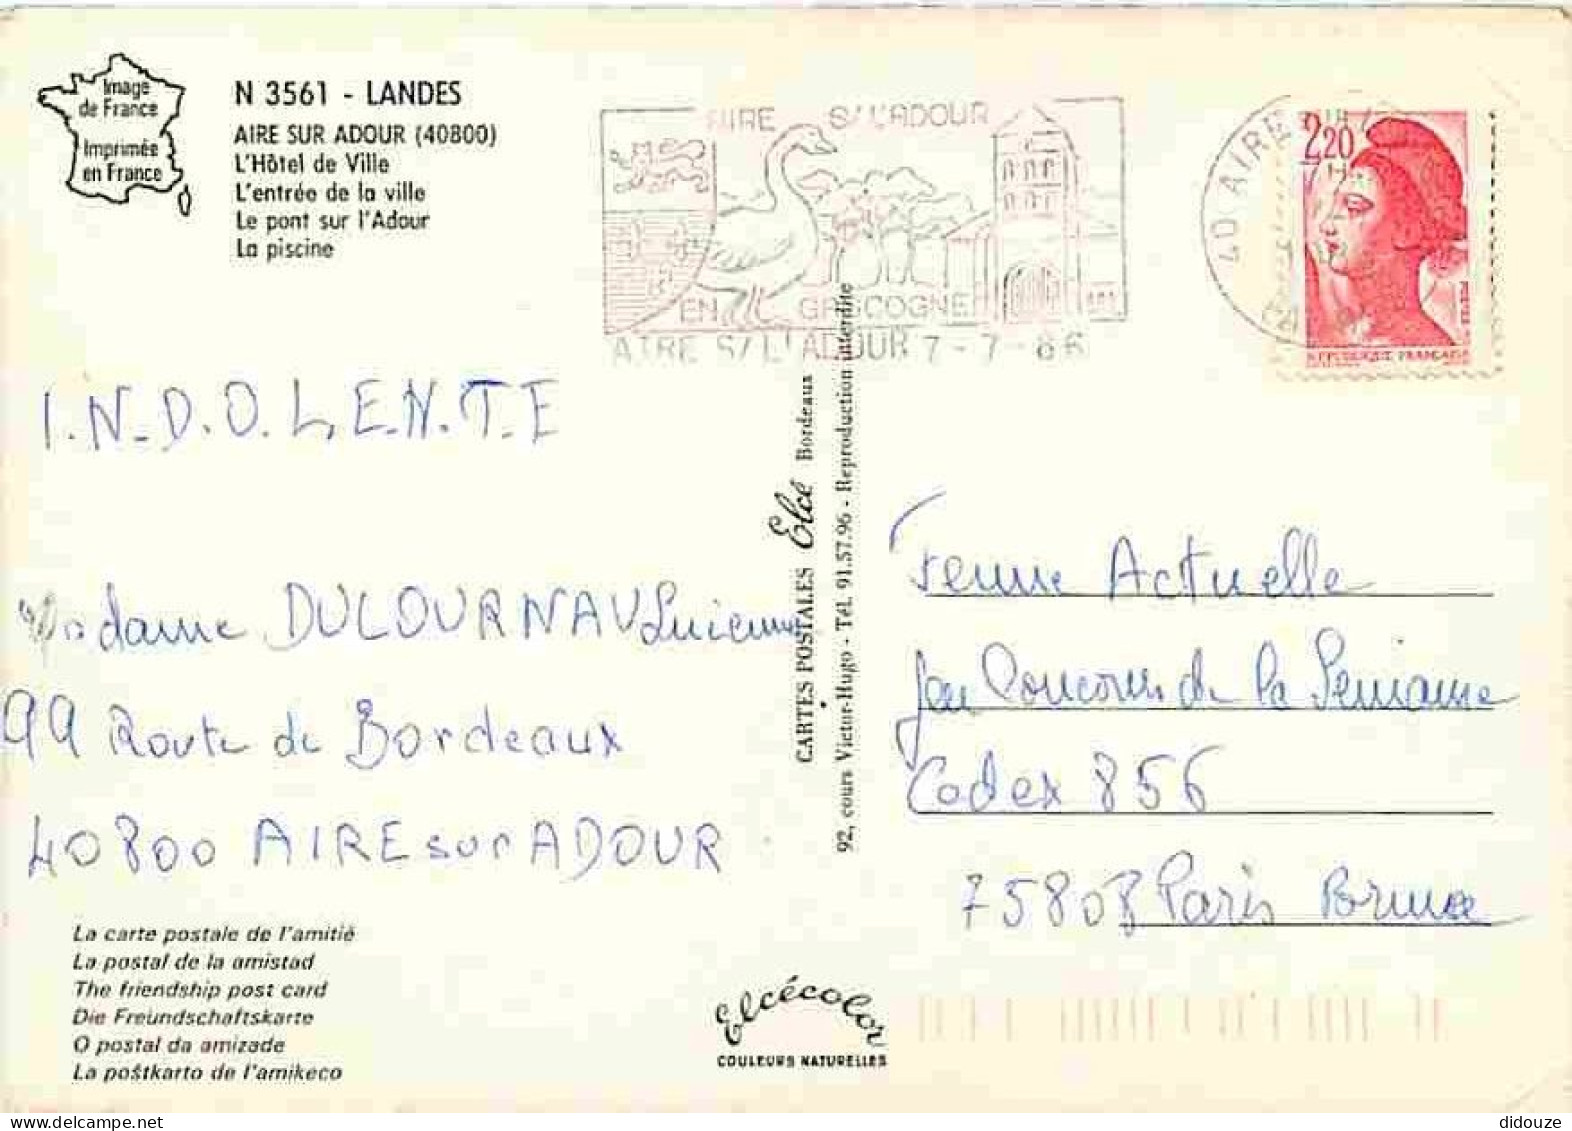 Image
de France
Imprimée
en France
N 3561 - LANDES
AIRE SUR ADOUR (40800)
L'Hôtel de Ville
L'entrée de la ville
Le pont sur l'Adour
La piscine
AIRE S/ L'ADOUR
EN GASCOGNE
AIRE S/ L'ADOUR 7 - 7 - 86
40 AIRE SUR
2,20
REPUBLIQUE FRANÇAISE
I.N-D.O.L.E.N.T.E
Madame DULOURNAU Lucienne
99 Route de Bordeaux
40800 AIRE sur ADOUR
CARTES POSTALES Elcé Bordeaux
92, cours Victor-Hugo - Tél. 91.57.96 - Reproduction interdite
Femme Actuelle
Jeu Concours de la Semaine
Cedex 856
75808 Paris Brune
La carte postale de l'amitié
La postal de la amistad
The friendship post card
Die Freundschaftskarte
O postal da amizade
La poŝtkarto de l'amikeco
Elcécolor
COULEURS NATURELLES
didouze